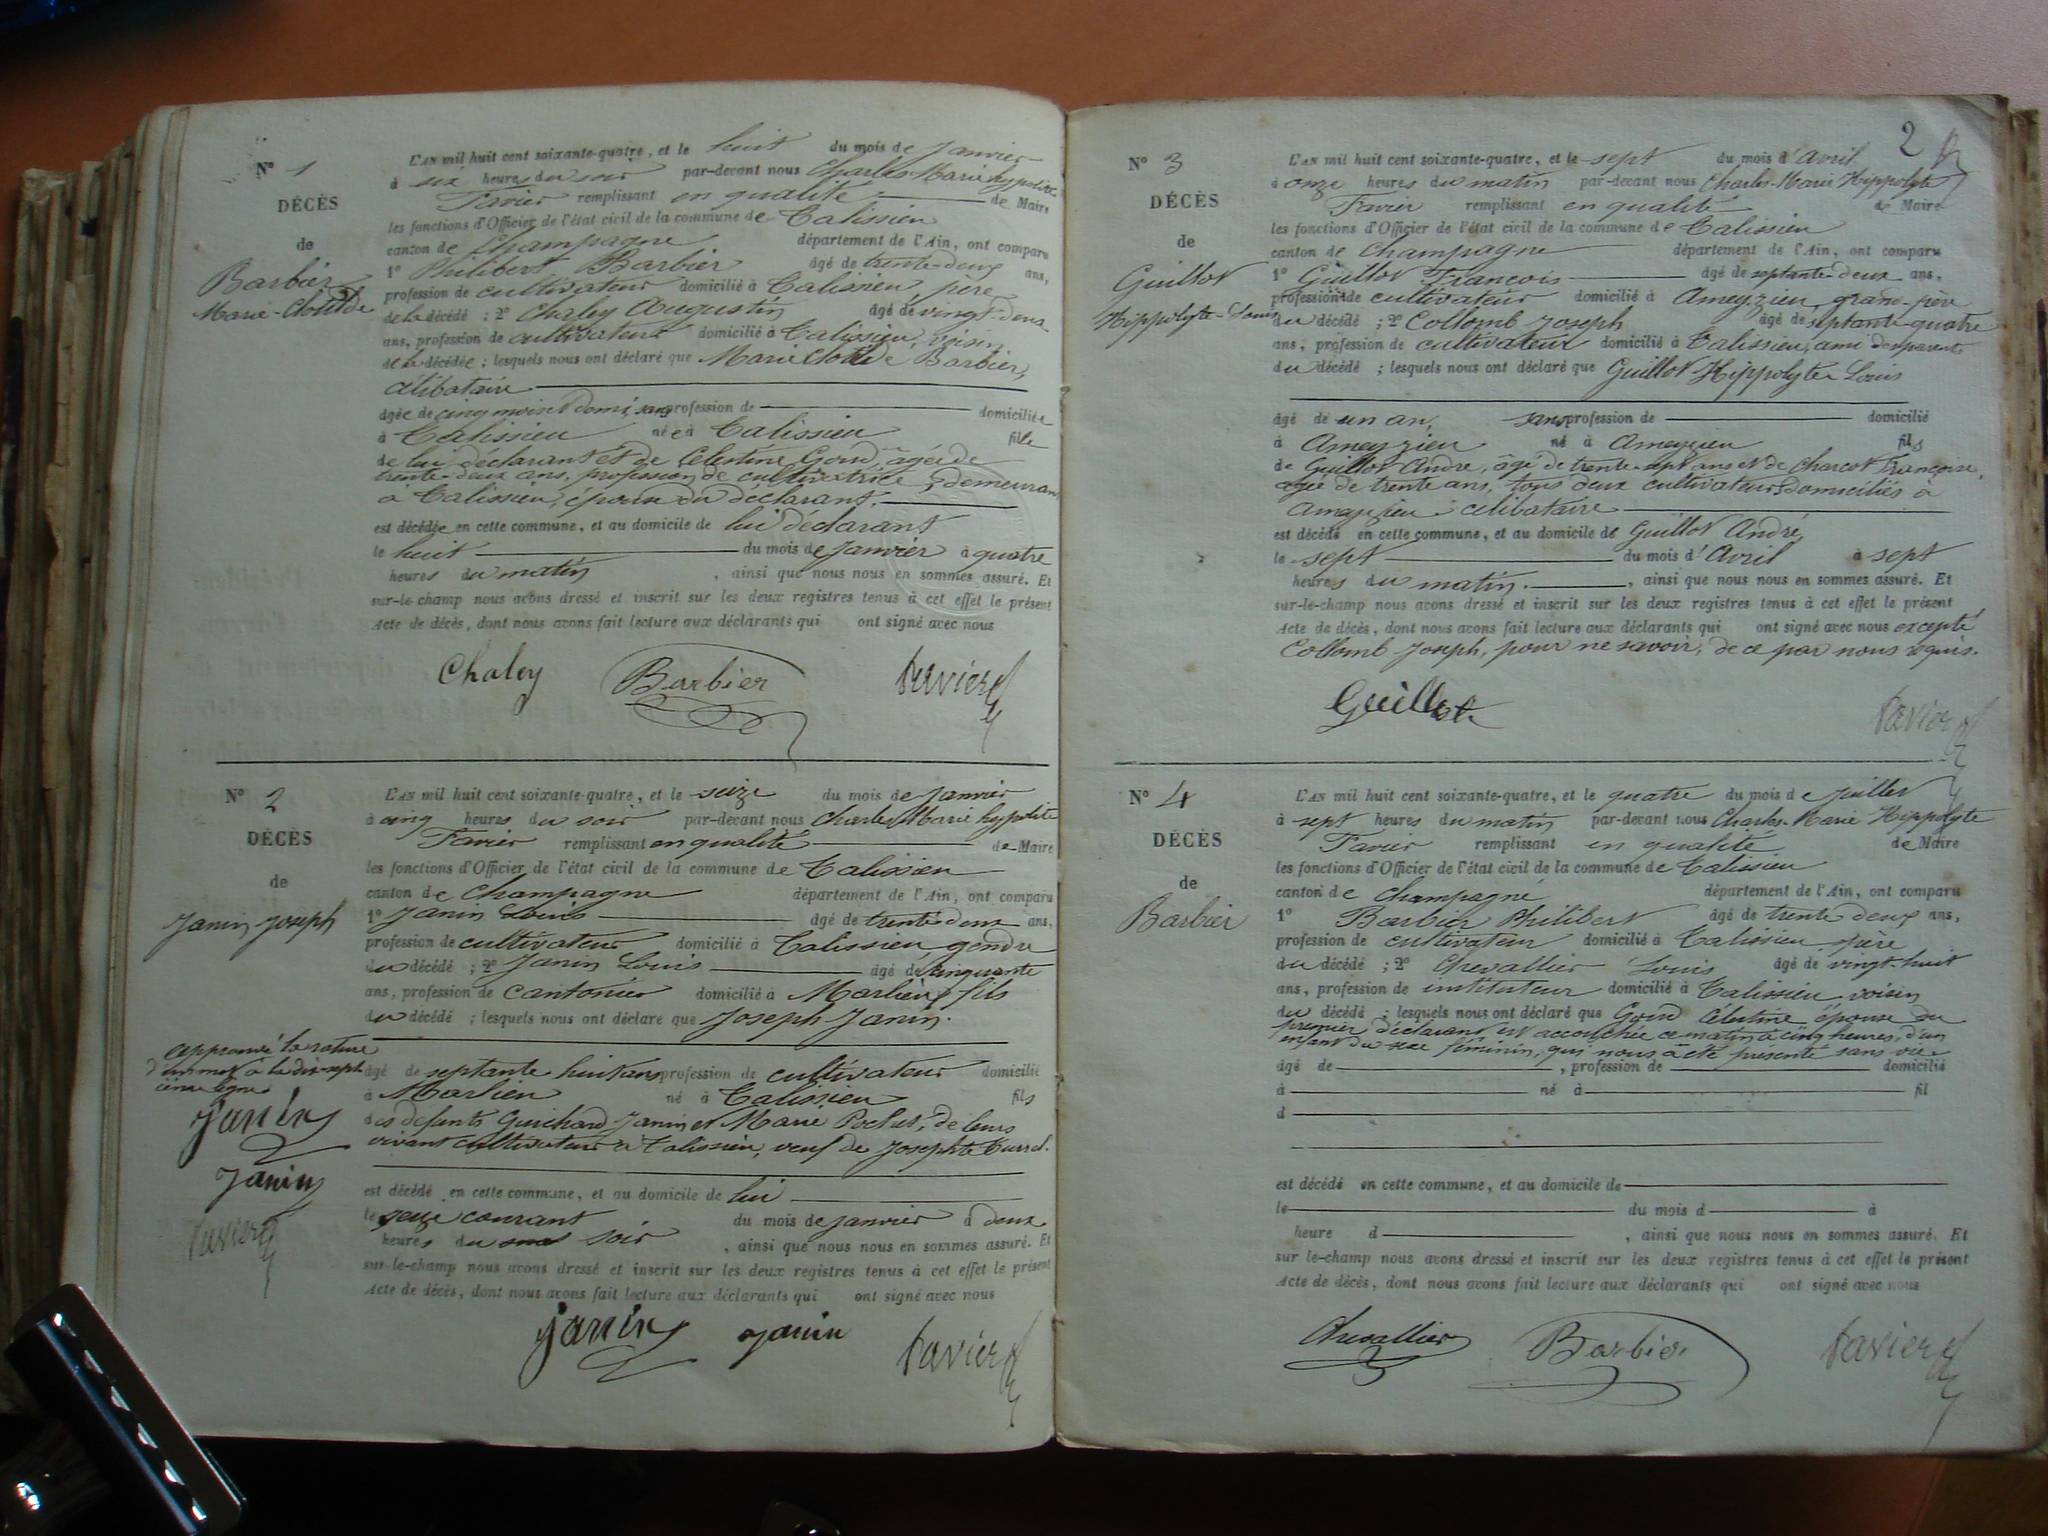 N° 1
DÉCÈS
de
Barbier
Marie-Clotilde
L'AN mil huit cent soixante-quatre, et le huit du mois de Janvier
à six heures du soir par-devant nous Charles Marie hyppolite
Favier remplissant en qualité de Maire
les fonctions d'Officier de l'état civil de la commune de Talissieu
canton de Champagne département de l'Ain, ont comparu
1° Philibert Barbier âgé de trente-deux ans,
profession de cultivateur domicilié à Talissieu, père
de la décédé ; 2° Chaley Augustin âgé de vingt-deux
ans, profession de cultivateur domicilié à Talissieu, voisin
de la décédée ; lesquels nous ont déclaré que Marie Clotilde Barbier,
célibataire
âgée de cinq mois et demi, sans profession de domiciliée
à Talissieu née à Talissieu fille
de lui déclarant et de Célestine Goud, âgée de
trente-deux ans, profession de cultivatrice, demeurant
à Talissieu, épouse du déclarant.
est décédée en cette commune, et au domicile de lui déclarant
le huit du mois de Janvier à quatre
heures du matin , ainsi que nous nous en sommes assuré. Et
sur-le-champ nous avons dressé et inscrit sur les deux registres tenus à cet effet le présent
Acte de décès, dont nous avons fait lecture aux déclarants qui ont signé avec nous
Chaley Barbier Favier
N° 2
DÉCÈS
de
Janin Joseph
L'AN mil huit cent soixante-quatre, et le seize du mois de Janvier
à cinq heures du soir par-devant nous Charles Marie hyppolite
Favier remplissant en qualité de Maire
les fonctions d'Officier de l'état civil de la commune de Talissieu
canton de Champagne département de l'Ain, ont comparu
1° Janin Louis âgé de trente deux ans,
profession de cultivateur domicilié à Talissieu, gendre
du décédé ; 2° Janin Louis âgé de cinquante
ans, profession de cantonier domicilié à Marlieu, fils
du décédé ; lesquels nous ont déclaré que Joseph Janin.
approuvé la rature
d'un mot à la dix-sept
ième ligne
Janin
Janin
Favier
âgé de septante huit ans profession de cultivateur domicilié
à Marlieu né à Talissieu fils
des défunts Guichard Janin et Marie Pochet, de leurs
vivant cultivateurs à Talissieu, veuf de Josephte
est décédé en cette commune, et au domicile de lui
le seize courant du mois de Janvier à deux
heures du soir , ainsi que nous nous en sommes assuré. Et
sur-le-champ nous avons dressé et inscrit sur les deux registres tenus à cet effet le présent
Acte de décès, dont nous avons fait lecture aux déclarants qui ont signé avec nous
Janin Janin Favier
2
N° 3
DÉCÈS
de
Guillot
Hippolyte-Louis
L'AN mil huit cent soixante-quatre, et le sept du mois d'Avril
à onze heures du matin par-devant nous Charles-Marie Hippolyte
Favier remplissant en qualité de Maire
les fonctions d'Officier de l'état civil de la commune de Talissieu
canton de Champagne département de l'Ain, ont comparu
1° Guillot François âgé de septante-deux ans,
profession de cultivateur domicilié à Ameyzieu, grand-père
du décédé ; 2° Collomb Joseph âgé de septante-quatre
ans, profession de cultivateur domicilié à Talissieu, ami des parents
du décédé ; lesquels nous ont déclaré que Guillot Hippolyte Louis
âgé de un an, sans profession de domicilié
à Ameyzieu né à Ameyzieu fils
de Guillot André, âgé de trente-sept ans et de Charcot Françoise,
agée de trente ans, tous deux cultivateurs domiciliés à
Ameyzieu célibataire
est décédé en cette commune, et au domicile de Guillot André,
le sept du mois d'Avril à sept
heures du matin. , ainsi que nous nous en sommes assuré. Et
sur-le-champ nous avons dressé et inscrit sur les deux registres tenus à cet effet le présent
Acte de décès, dont nous avons fait lecture aux déclarants qui ont signé avec nous excepté
Collomb Joseph, pour ne savoir, de ce par nous requis.
Guillot Favier
N° 4
DÉCÈS
de
Barbier
L'AN mil huit cent soixante-quatre, et le quatre du mois de Juillet
à sept heures du matin par-devant nous Charles-Marie Hippolyte
Favier remplissant en qualité de Maire
les fonctions d'Officier de l'état civil de la commune de Talissieu
canton de Champagne département de l'Ain, ont comparu
1° Barbier Philibert âgé de trente deux ans,
profession de cultivateur domicilié à Talissieu, père
du décédé ; 2° Chevallier Louis âgé de vingt-huit
ans, profession de instituteur domicilié à Talissieu voisin
du décédé ; lesquels nous ont déclaré que Goud Célestine épouse du
premier déclarant, est accouchée ce matin à cinq heures, d'un
enfant du sexe féminin, qui nous a été présenté sans vie
âgé de , profession de domicilié
à né à fil
d
est décédé en cette commune, et au domicile de
le du mois d à
heure d , ainsi que nous nous en sommes assuré. Et
sur le-champ nous avons dressé et inscrit sur les deux registres tenus à cet effet le présent
Acte de décès, dont nous avons fait lecture aux déclarants qui ont signé avec nous
Chevallier Barbier Favier